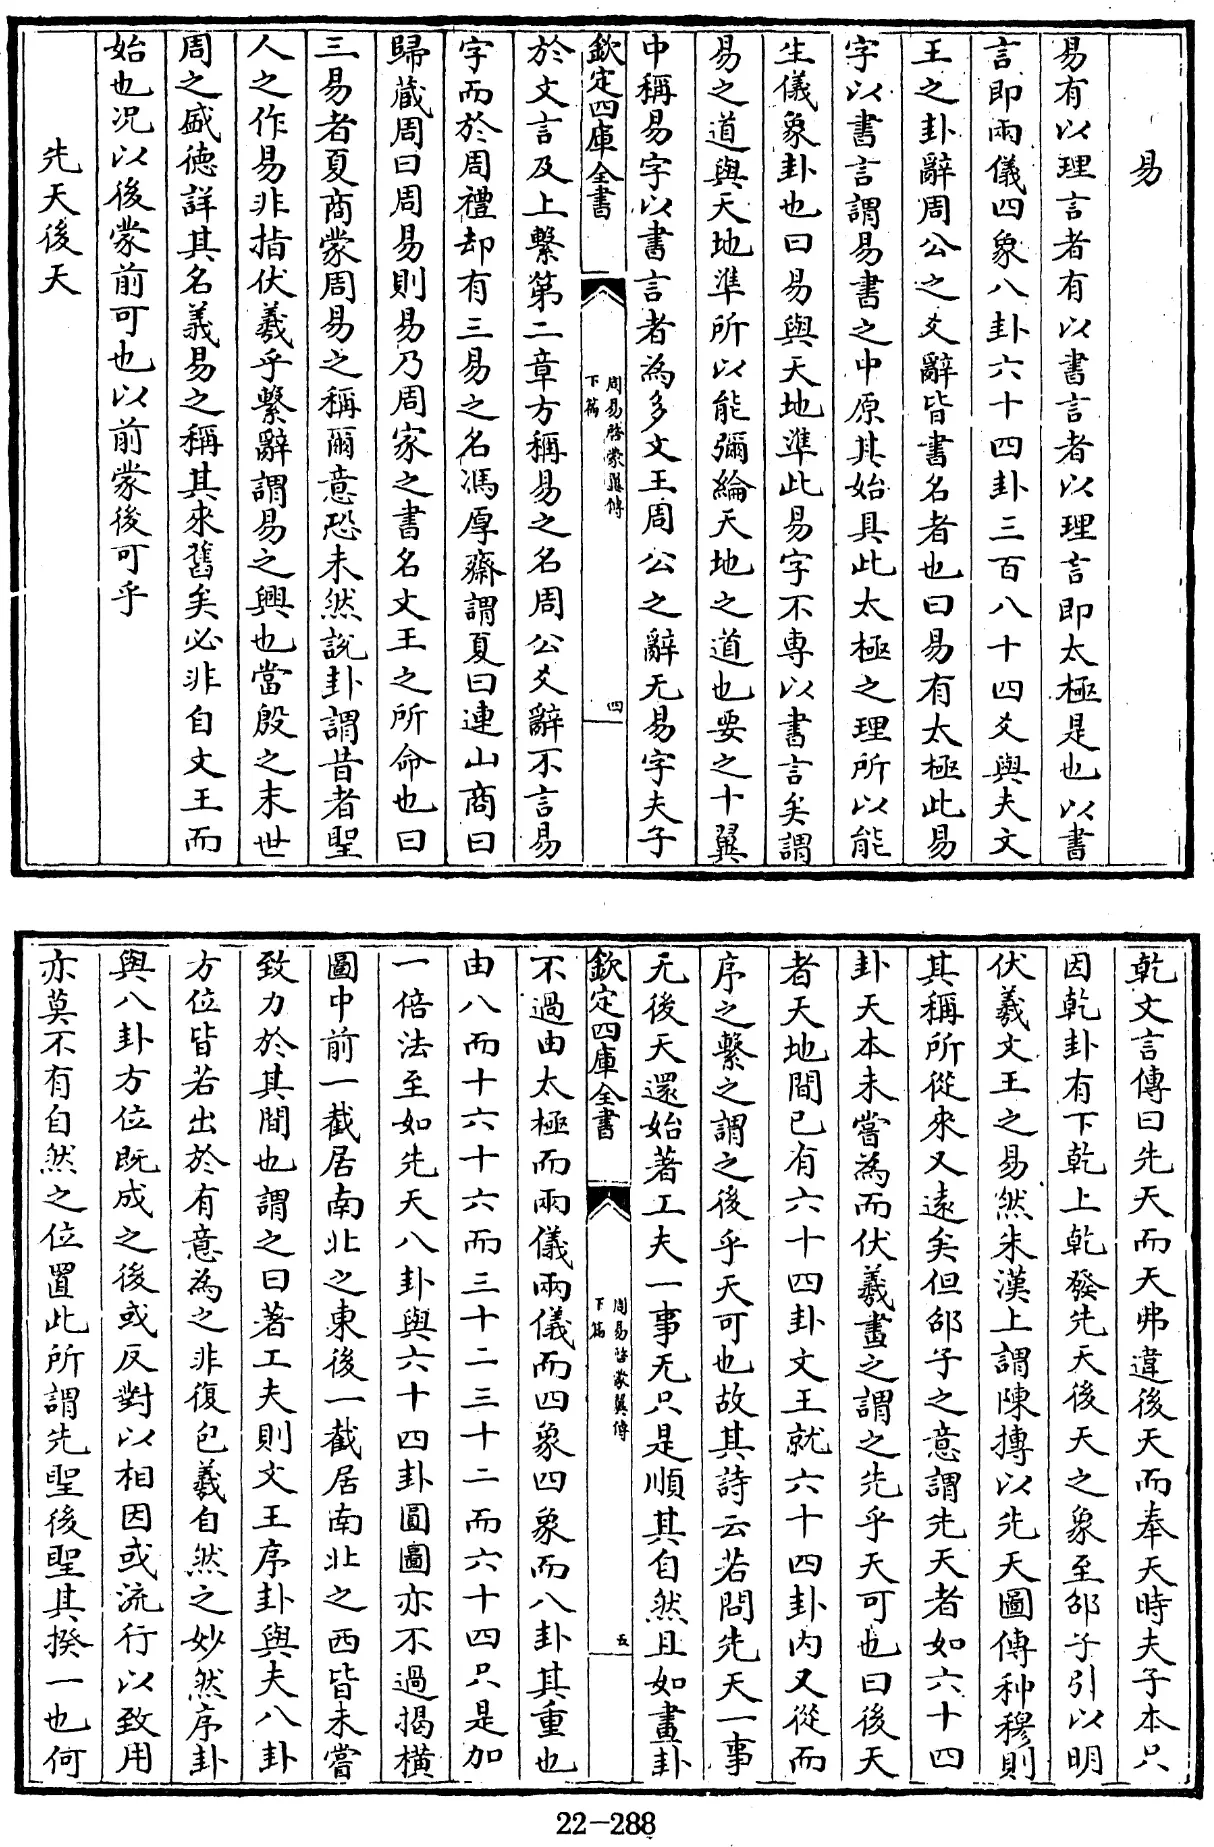 易
易有以理言者有以書言者以理言即太極是也以書
言即兩儀四象八卦六十四卦三百八十四爻與夫文
王之卦辭周公之爻辭皆書名者也曰易有太極此易
字以書言謂易書之中原其始具此太極之理所以能
生儀象卦也曰易與天地準此易字不專以書言矣謂
易之道與天地準所以能彌綸天地之道也要之十翼
中稱易字以書言者為多文王周公之辭无易字夫子
欽定四庫全書
周易啓蒙翼傳
下篇
四
於文言及上繫第二章方稱易之名周公爻辭不言易
字而於周禮却有三易之名馮厚齋謂夏曰連山商曰
歸藏周曰周易則易乃周家之書名文王之所命也曰
三易者夏商蒙周易之稱爾意恐未然說卦謂昔者聖
人之作易非指伏羲乎繫辭謂易之興也當殷之末世
周之盛德詳其名義易之稱其來舊矣必非自文王而
始也况以後蒙前可也以前蒙後可乎
先天後天
乾文言傳曰先天而天弗違後天而奉天時夫子本只
因乾卦有下乾上乾發先天後天之象至邵子引以明
伏羲文王之易然朱漢上謂陳摶以先天圖傳种穆則
其稱所從來又遠矣但邵子之意謂先天者如六十四
卦天本未嘗為而伏羲畫之謂之先乎天可也曰後天
者天地間已有六十四卦文王就六十四卦内又從而
序之繫之謂之後乎天可也故其詩云若問先天一事
无後天還始著工夫一事无只是順其自然且如畫卦
欽定四庫全書
周易啓蒙翼傳
下篇
五
不過由太極而兩儀兩儀而四象四象而八卦其重也
由八而十六十六而三十二三十二而六十四只是加
一倍法至如先天八卦與六十四卦圓圖亦不過揭橫
圖中前一截居南北之東後一截居南北之西皆未嘗
致力於其間也謂之曰著工夫則文王序卦與夫八卦
方位皆若出於有意為之非復包羲自然之妙然序卦
與八卦方位既成之後或反對以相因或流行以致用
亦莫不有自然之位置此所謂先聖後聖其揆一也何
22-288